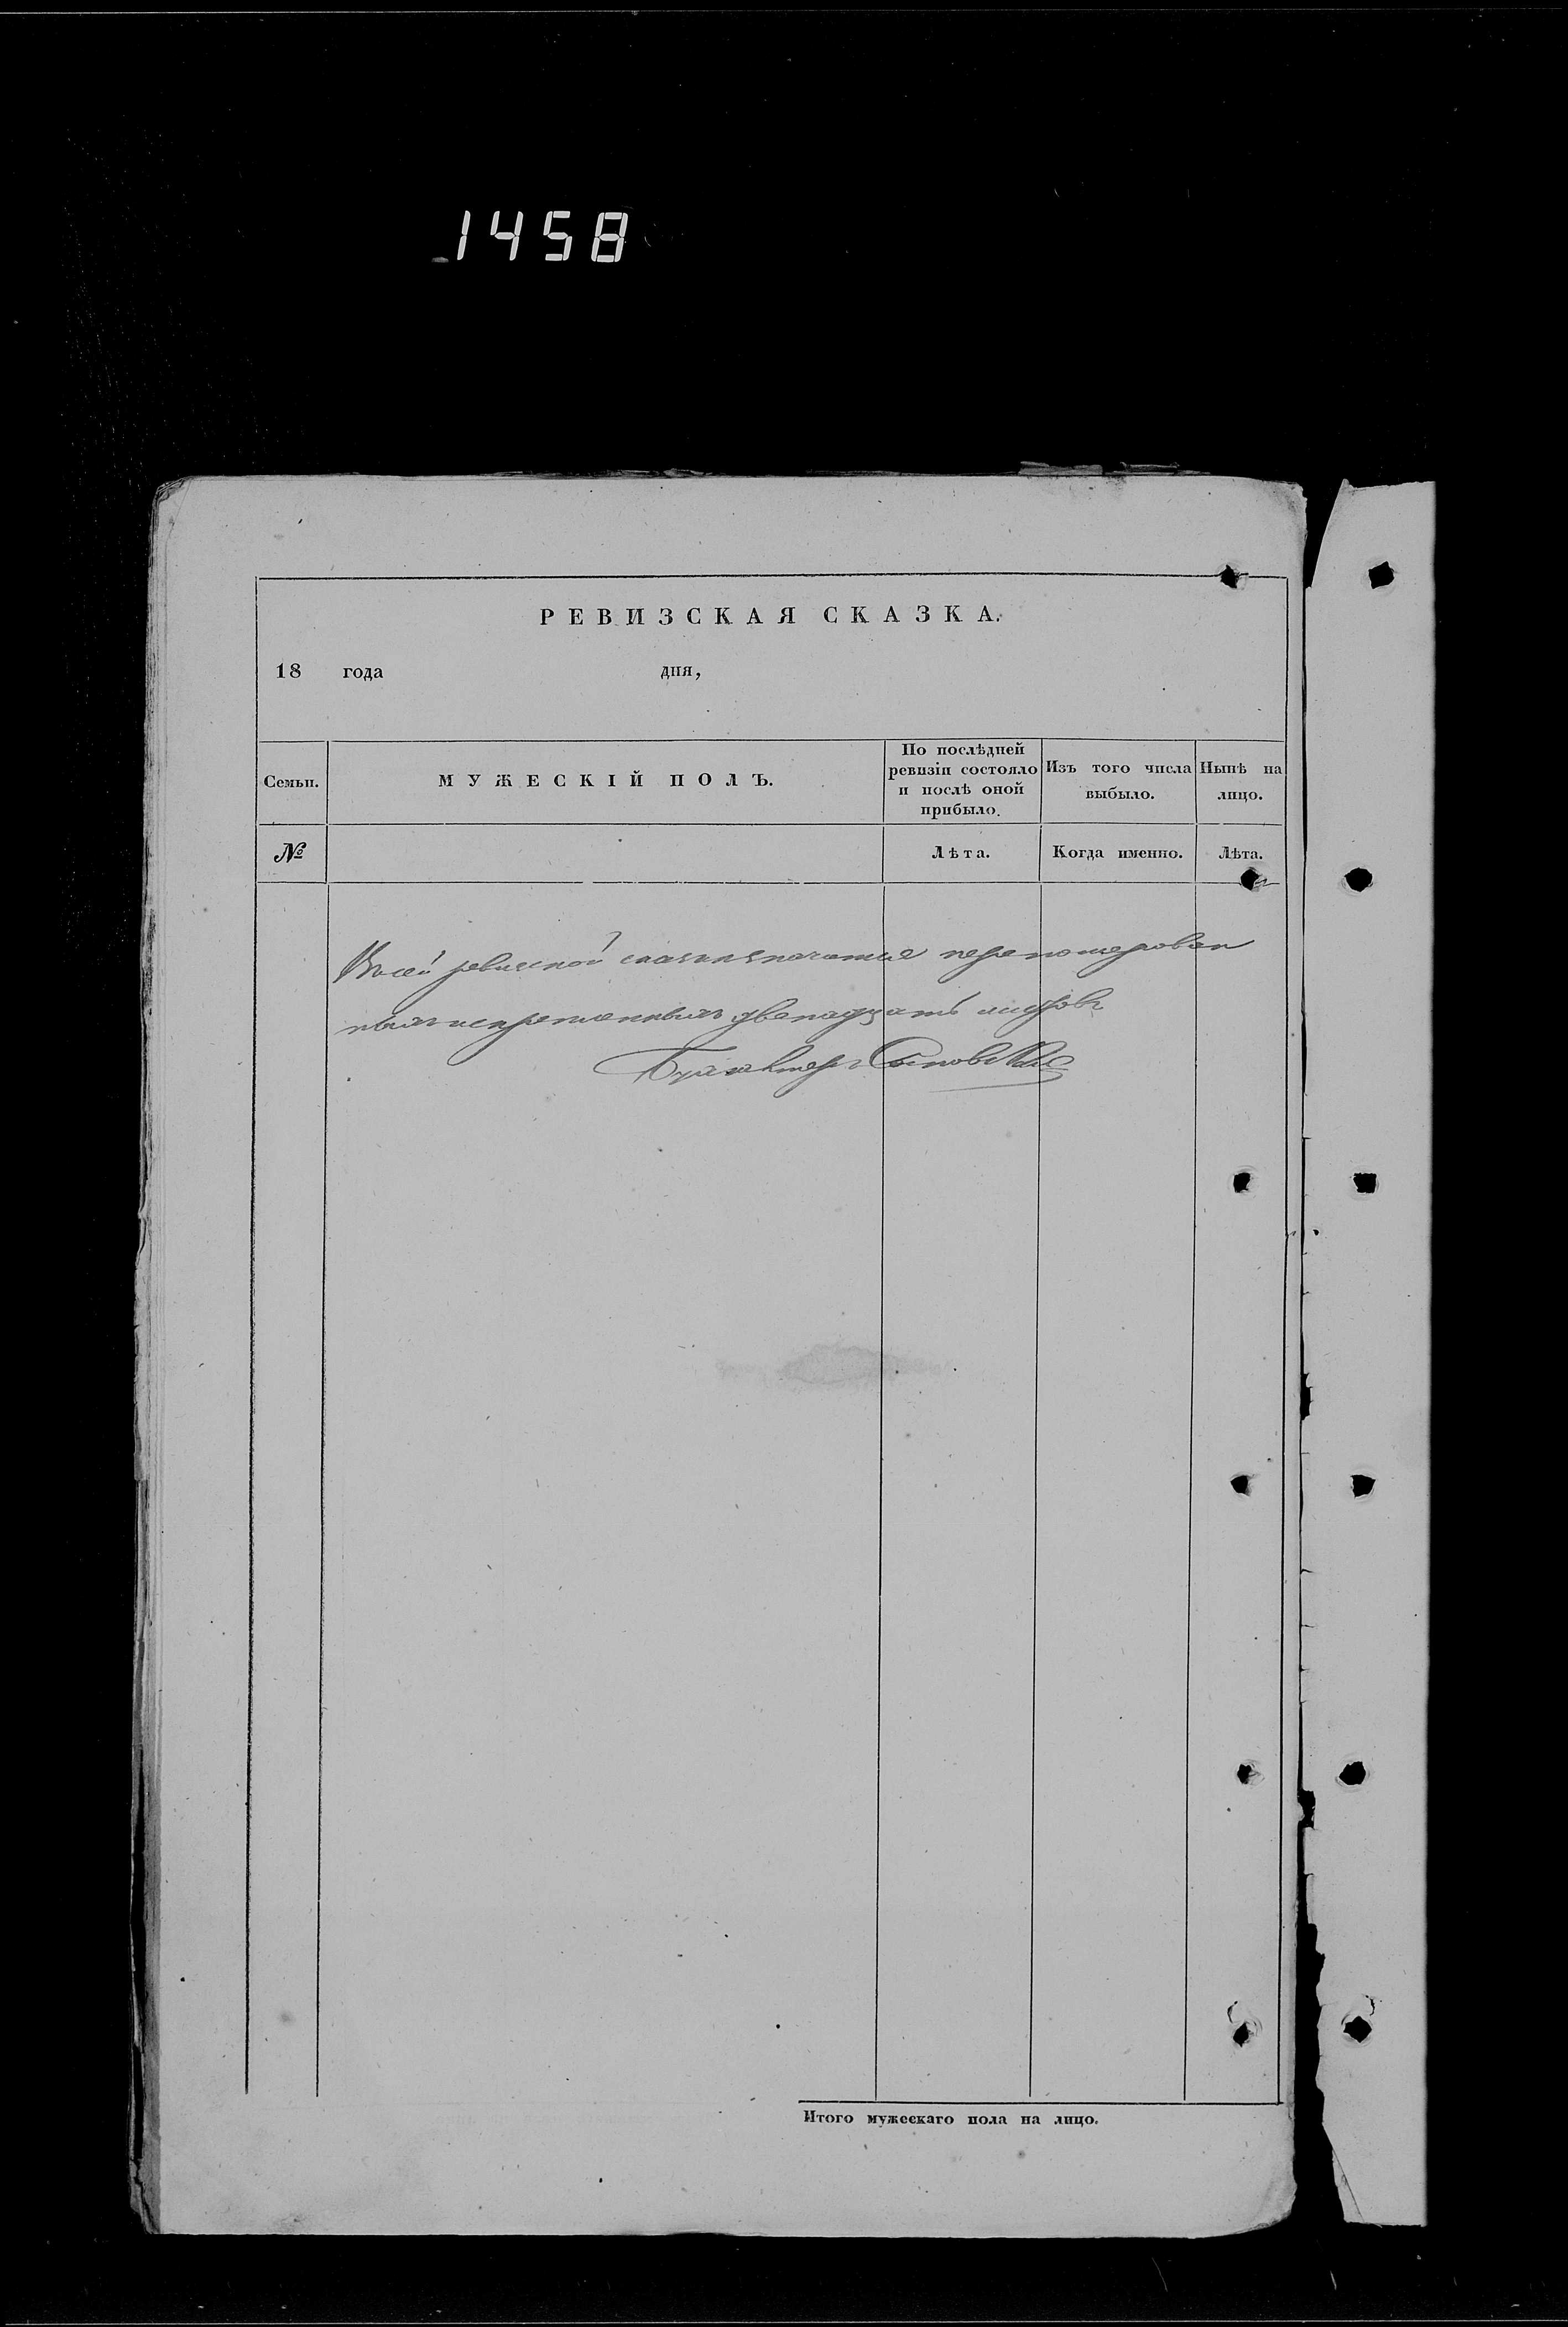 1458
РЕВИЗСКАЯ СКАЗКА.
18 года дня,
Семьи.
МУЖЕСКІЙ ПОЛЪ.
По послѣдней ревизіи состояло и послѣ оной прибыло.
Изъ того числа выбыло.
Нынѣ на лицо.
№
Лѣта.
Когда именно.
Лѣта.
Всей ревиской перенумерован
двенадцать листовъ
Бухгалтеръ
Итого мужескаго пола на лицо.